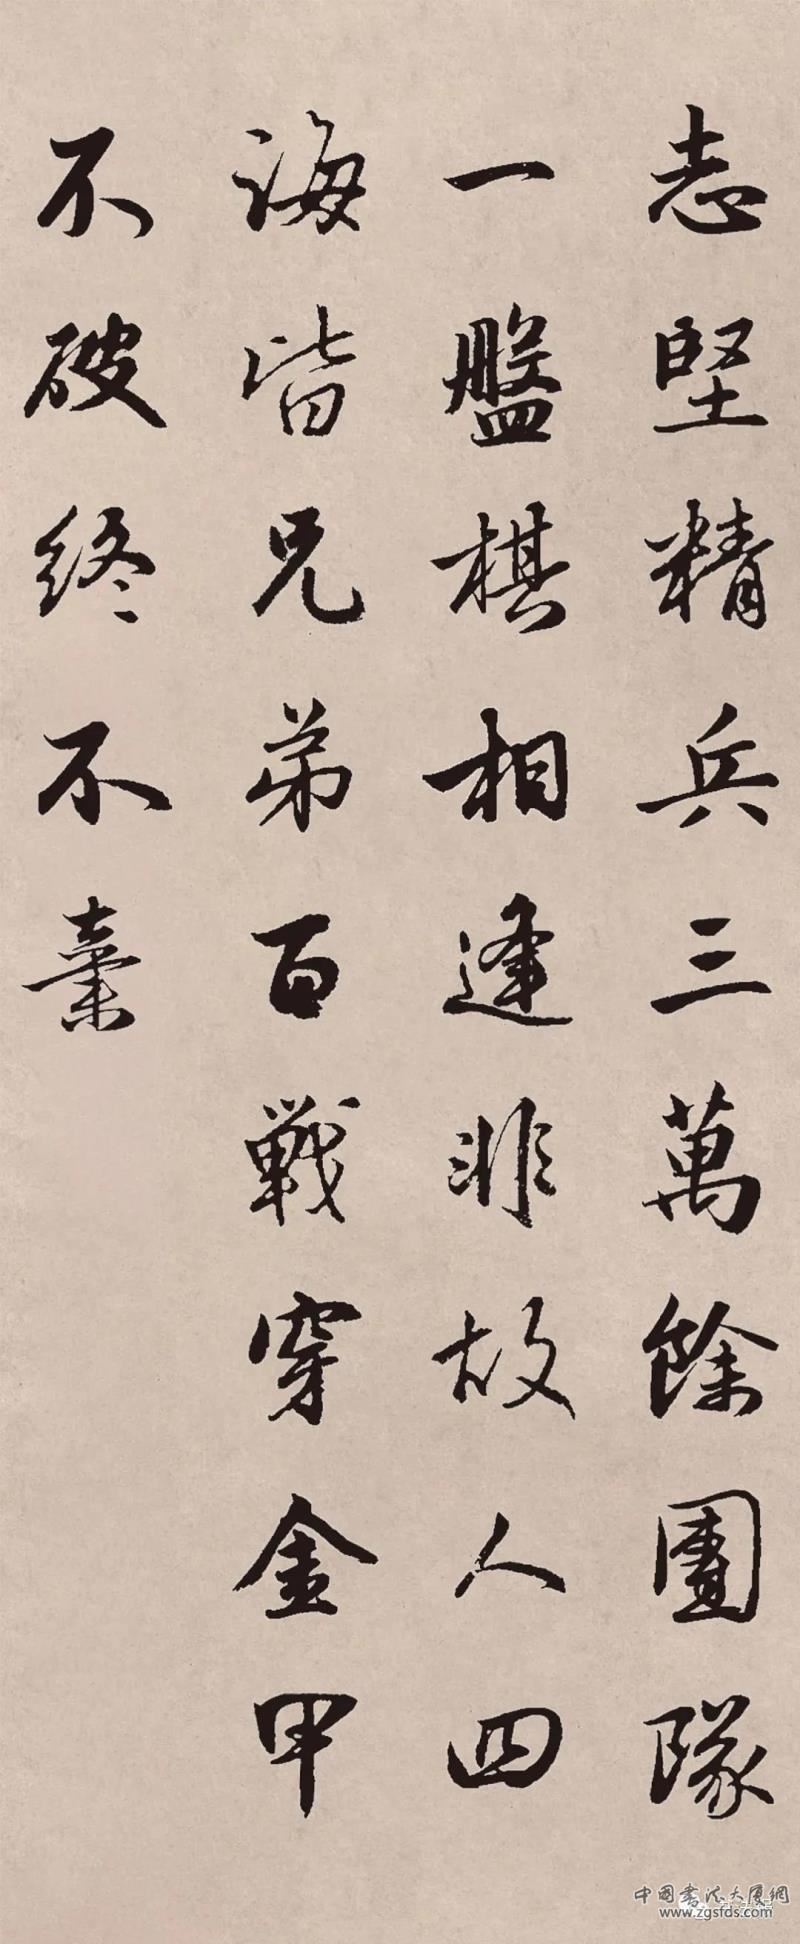 志堅精兵三萬餘團隊
一盤棋相逢非故人四
海皆兄弟百戰穿金甲
不破終不棄
中國書法大厦網
www.zgsfds.com